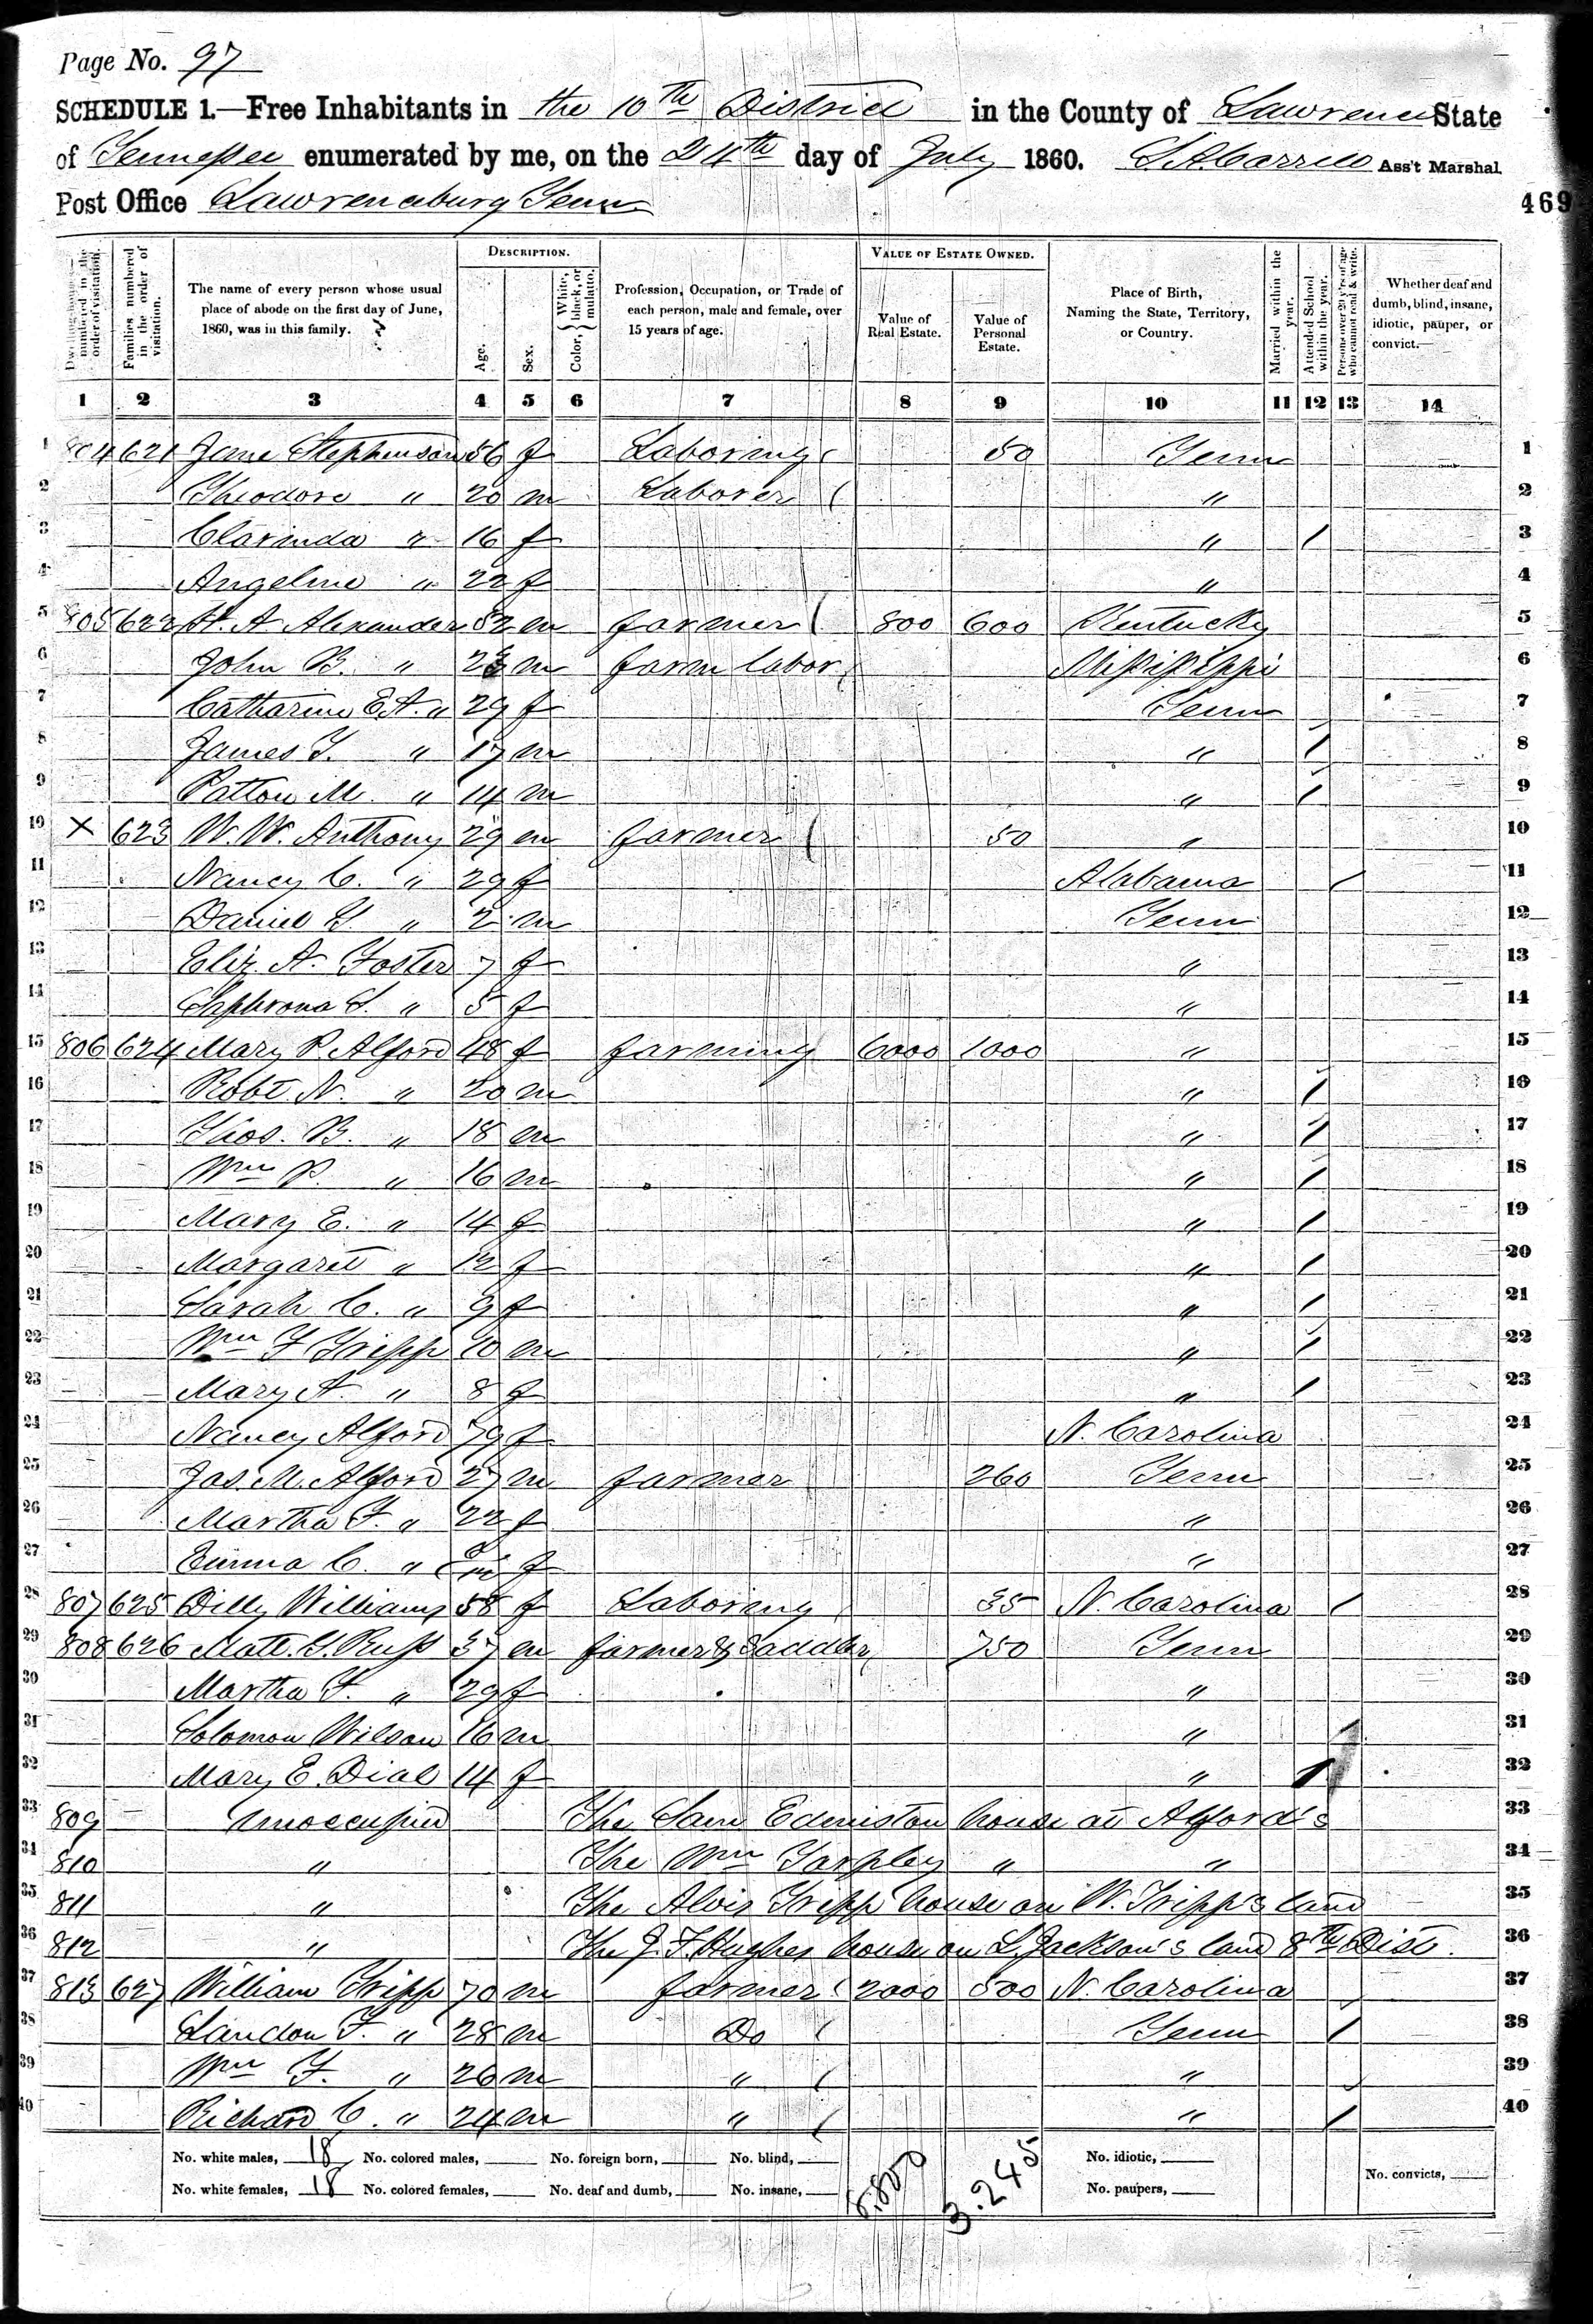 Page No. 97
SCHEDULE 1.—Free Inhabitants in the 10th District in the County of Lawrence State
of Tennessee enumerated by me, on the 24th day of July 1860. Ass't Marshal.
Post Office Lawrenceburg Tenn
469
DESCRIPTION. VALUE OF ESTATE OWNED.
Dwelling-houses numbered in the order of visitation. Families numbered in the order of visitation. The name of every person whose usual place of abode on the first day of June, 1860, was in this family. Age. Sex. Color, { White, black, or mulatto. Profession, Occupation, or Trade of each person, male and female, over 15 years of age. Value of Real Estate. Value of Personal Estate. Place of Birth, Naming the State, Territory, or Country. Married within the year. Attended School within the year. Persons over 20 y'rs of age who cannot read & write. Whether deaf and dumb, blind, insane, idiotic, pauper, or convict.
1 2 3 4 5 6 7 8 9 10 11 12 13 14
1 804 621 Jane Stephenson 56 f Laboring 50 Tenn 1
2 Theodore " 20 m Laborer " 2
3 Clarinda " 16 f " / 3
4 Angeline " 22 f " 4
5 805 622 A. Alexander 52 m farmer 800 600 Kentucky 5
6 John B. " m farm labor Mississippi 6
7 Catharine E. A. " 29 f Tenn 7
8 James T. " 17 m " / 8
9 Patton M. " 14 m " / 9
10 X 623 W. W. Anthony 29 m farmer 50 " 10
11 Nancy C. " 29 f Alabama / 11
12 Daniel " 2 m Tenn 12
13 Eliz. A. Foster 7 f " 13
14 Saphrona " 5 f " 14
15 806 624 Mary P. Alford 48 f farming 6000 1000 " 15
16 Robt. N. " 20 m " / 16
17 Thos. B. " 18 m " / 17
18 Wm P. " 16 m " / 18
19 Mary E. " 14 f " / 19
20 Margaret " 12 f " / 20
21 Sarah C. " 9 f " / 21
22 Wm F Tripp 10 m " / 22
23 Mary A. " 8 f " / 23
24 Nancy Alford 79 f N. Carolina 24
25 Jas. M. Alford 27 m farmer 260 Tenn 25
26 Martha F. " 22 f " 26
27 Emma C. " f " 27
28 807 625 Dilly Williams 58 f Laboring 35 N. Carolina / 28
29 808 626 Matt. Russ 37 m farmer & Saddler 750 Tenn 29
30 Martha F. " 29 f " 30
31 Solomon Wilson 16 m " / 31
32 Mary E. Dial 14 f " / 32
33 809 Unoccupied The Sam Edmiston house at Alford's 33
34 810 " The Wm Tarpley " " 34
35 811 " The Alvis Tripp house on W. Tripp's land 35
36 812 " The J. F. Hughes house on L. Jackson's land 8th Dist. 36
37 813 627 William Tripp 70 m farmer 2000 500 N. Carolina 37
38 Landon F. " 28 m Do Tenn / 38
39 Wm Y. " 26 m " " / 39
40 Richard C. " 24 m " " / 40
No. white males, 18 No. colored males, No. foreign born, No. blind, 8,800 3.245 No. idiotic, No. convicts,
No. white females, 18 No. colored females, No. deaf and dumb, No. insane, No. paupers,